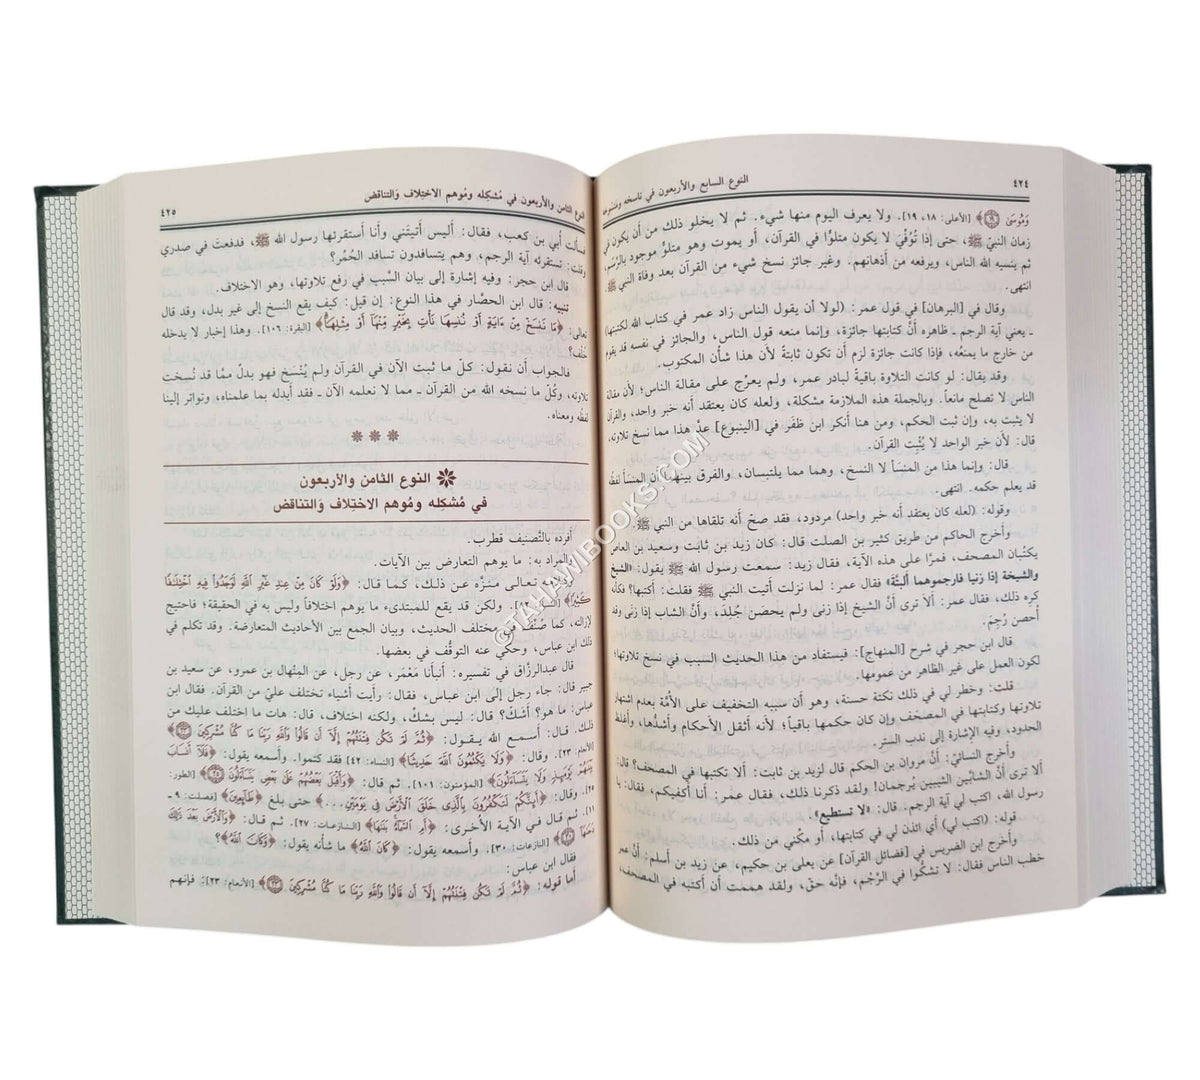 ٤٢٤
النوع السابع والأربعون في ناسخه ومنسوخه
وَمُوسَىٰ ﴿١٩﴾ [الأعلى: ١٨، ١٩]. ولا يعرف اليوم منها شيء. ثم لا يخلو ذلك من أن يكون في
زمان النبيّ ﷺ، حتى إذا تُوُفِّيَ لا يكون متلوًّا في القرآن، أو يموت وهو متلوٌّ موجود بالرَّسْم،
ثم ينسيه الله الناس، ويرفعه من أذهانهم. وغير جائز نسخ شيء من القرآن بعد وفاة النبي ﷺ.
انتهى.
وقال في [البرهان] في قول عمر: (لولا أن يقول الناس زاد عمر في كتاب الله لكتبتها)
ـ يعني آية الرجم ـ ظاهره أنَّ كتابتها جائزة، وإنما منعه قول الناس، والجائز في نفسه قد يقوم
من خارج ما يمنعُه، فإذا كانت جائزة لزم أن تكون ثابتةً لأن هذا شأن المكتوب.
وقد يقال: لو كانت التلاوة باقيةً لبادر عمر، ولم يعرِّج على مقالة الناس؛ لأن مقالة
الناس لا تصلح مانعاً. وبالجملة هذه الملازمة مشكلة، ولعله كان يعتقد أنه خبر واحد، والقرآن
لا يثبت به، وإن ثبت الحكم، ومن هنا أنكر ابن ظَفَر في [الينبوع] عدَّ هذا مما نسخ تلاوته،
قال: لأن خبر الواحد لا يُثْبِت القرآن.
قال: وإنما هذا من المنسَأ لا النسخ، وهما مما يلتبسان، والفرق بينهما أن المنسَأ لفظه
قد يعلم حكمه. انتهى.
وقوله: (لعله كان يعتقد أنه خبر واحد) مردود، فقد صحّ أنه تلقاها من النبي ﷺ.
وأخرج الحاكم من طريق كثير بن الصلت قال: كان زيد بن ثابت وسعيد بن العاص
يكتُبان المصحف، فمرَّا على هذه الآية، فقال زيد: سمعت رسول الله ﷺ يقول: «الشيخ
والشيخة إذا زنيا فارجموهما ألبتَّة» فقال عمر: لما نزلت أتيت النبي ﷺ فقلت: أكتبها؟ فكأنه
كره ذلك، فقال عمر: ألا ترى أنَّ الشيخ إذا زنى ولم يحصن جُلِدَ، وأنَّ الشاب إذا زنَى وقد
أحصن رُجِمَ.
قال ابن حجر في شرح [المنهاج]: فيستفاد من هذا الحديث السبب في نسخ تلاوتها؛
لكون العمل على غير الظاهر من عمومها.
قلت: وخطر لي في ذلك نكتة حسنة، وهو أن سببه التخفيف على الأمّة بعدم اشتهار
تلاوتها وكتابتها في المصحف وإن كان حكمها باقياً؛ لأنه أثقل الأحكام وأشدُّها، وأغلظ
الحدود، وفيه الإشارة إلى ندب الستر.
وأخرج النسائيّ: أنّ مروان بن الحكم قال لزيد بن ثابت: ألا تكتبها في المصحف؟ قال:
ألا ترى أنّ الشابّين الثيبين يرجمان! ولقد ذكرنا ذلك، فقال عمر: أنا أكفيكم، فقال: يا
رسول الله، اكتب لي آية الرجم. قال: «لا تستطيع».
قوله: (اكتب لي) أي ائذن لي في كتابتها، أو مكِّني من ذلك.
وأخرج ابن الضريس في [فضائل القرآن] عن يعلى بن حكيم، عن زيد بن أسلم: أنَّ عمر
خطب الناس فقال: لا تشكوا في الرَّجْم، فإنَّه حقّ، ولقد هممت أن أكتبه في المصحف،
النوع الثامن والأربعون في مُشكِله ومُوهم الاختلاف والتناقض
٤٢٥
فسألت أُبي بن كعب، فقال: أليس أتيتَني وأنا أستقرئها رسول الله ﷺ، فدفعتَ في صدري
وقلت: تستقرئه آية الرجم، وهم يتسافدون تسافد الحُمُر؟
قال ابن حجر: وفيه إشارة إلى بيان السَّبب في رفع تلاوتها، وهو الاختلاف.
تنبيه: قال ابن الحصَّار في هذا النوع: إن قيل: كيف يقع النسخ إلى غير بدل، وقد قال
تعالى: ﴿مَا نَنسَخْ مِنْ ءَايَةٍ أَوْ نُنسِهَا نَأْتِ بِخَيْرٍ مِّنْهَآ أَوْ مِثْلِهَآ﴾ [البقرة: ١٠٦]. وهذا إخبار لا يدخله
خُلْف؟
فالجواب أن نقول: كلّ ما ثبت الآن في القرآن ولم يُنْسَخ فهو بدلٌ ممَّا قد نُسخت
تلاوته، وكُلّ ما نسخه الله من القرآن ـ مما لا نعلمه الآن ـ فقد أبدله بما علمناه، وتواتر إلينا
لفظُه ومعناه.
النوع الثامن والأربعون
في مُشكِله ومُوهم الاختلاف والتناقض
أفرده بالتّصنيف قطرب.
والمراد به: ما يوهم التعارض بين الآيات.
تعالى منزَّه عن ذلك، كما قال: ﴿وَلَوْ كَانَ مِنْ عِندِ غَيْرِ اللَّهِ لَوَجَدُوا فِيهِ اخْتِلَافًا
كَثِيرًا﴾ ولكن قد يقع للمبتدىء ما يوهم اختلافاً وليس به في الحقيقة؛ فاحتيج
لإزالته، كما صُنِّف في مختلف الحديث، وبيان الجمع بين الأحاديث المتعارضة. وقد تكلم في
ذلك ابن عباس، وحُكي عنه التوقُّف في بعضها.
قال عبدالرزّاق في تفسيره: أنبأنا مَعْمَر، عن رجل، عن المِنْهال بن عمرو، عن سعيد بن
جبير قال: جاء رجل إلى ابن عباس، فقال: رأيت أشياء تختلف عليّ من القرآن. فقال ابن
عباس: ما هو؟ أشكّ؟ قال: ليس بشكّ، ولكنه اختلاف، قال: هات ما اختلف عليك من
ذلك. قال: أسمع الله يقول: ﴿ثُمَّ لَمْ تَكُن فِتْنَتُهُمْ إِلَّآ أَن قَالُوا وَاللَّهِ رَبِّنَا مَا كُنَّا مُشْرِكِينَ ﴿٢٣﴾﴾
[الأنعام: ٢٣]. وقال: ﴿وَلَا يَكْتُمُونَ اللَّهَ حَدِيثًا﴾ [النساء: ٤٢] فقد كتموا. وأسمعه يقول: ﴿فَلَآ أَنسَابَ
بَيْنَهُمْ يَوْمَئِذٍ وَلَا يَتَسَآءَلُونَ﴾ [المؤمنون: ١٠١]. ثم قال: ﴿وَأَقْبَلَ بَعْضُهُمْ عَلَىٰ بَعْضٍ يَتَسَآءَلُونَ ﴿٢٥﴾﴾ [الطور:
٢٥]. وقال: ﴿أَئِنَّكُمْ لَتَكْفُرُونَ بِالَّذِي خَلَقَ الْأَرْضَ فِي يَوْمَيْنِ...﴾ حتى بلغ ﴿طَآئِعِينَ﴾ [فصلت: ٩ ـ
١١]. ثم قال في الآية الأخرى: ﴿أَمِ السَّمَآءُ بَنَاهَا﴾ [النازعات: ٢٧]. ثم قال: ﴿وَالْأَرْضَ بَعْدَ ذَٰلِكَ
دَحَاهَآ ﴿٣٠﴾﴾ [النازعات: ٣٠]. وأسمعه يقول: ﴿كَانَ اللَّهُ﴾ ما شأنه يقول: ﴿وَكَانَ اللَّهُ﴾؟
فقال ابن عباس:
أما قوله: ﴿ثُمَّ لَمْ تَكُن فِتْنَتُهُمْ إِلَّآ أَن قَالُوا وَاللَّهِ رَبِّنَا مَا كُنَّا مُشْرِكِينَ ﴿٢٣﴾﴾ [الأنعام: ٢٣]: فإنهم
©TAHAMIBOOKS.COM